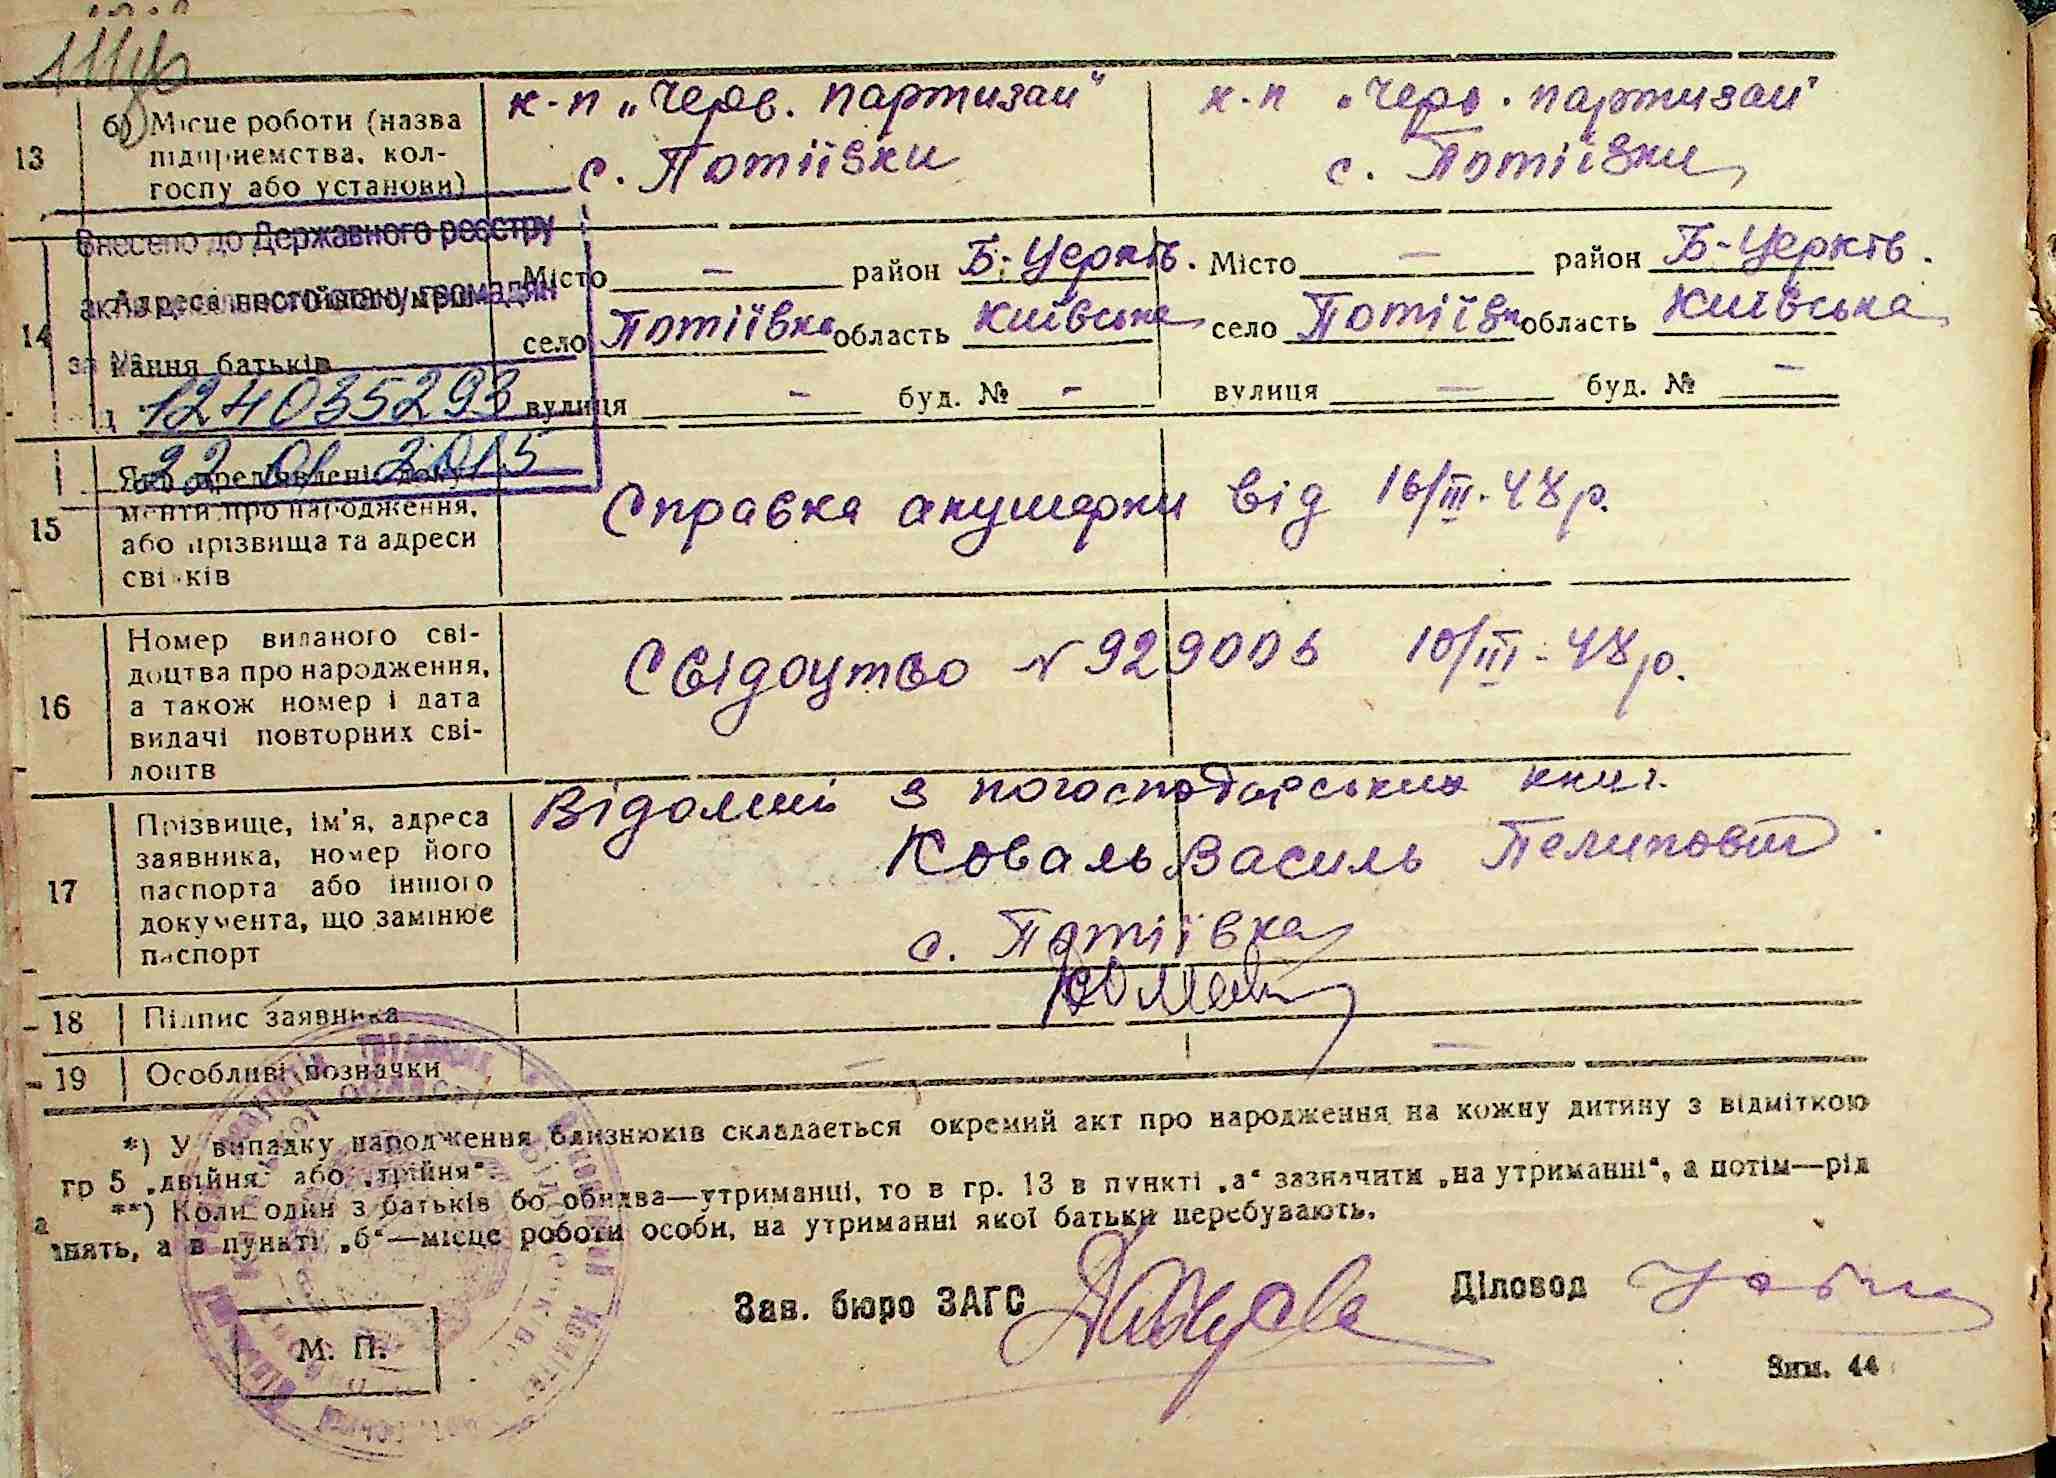 к-п „Черв. партизан" к-п „Черв. партизан"
13 б) Місце роботи (назва підприємства, колгоспу або установи)
с. Потіївки с. Потіївки
Внесено до Державного реєстру
актів цивільного стану громадян
за №
124035293
22 01 2015
14 Адреса постійного мешкання батьків
Місто — район Б-Церків. Місто — район Б-Церків.
село Потіївка область Київська село Потіївка область Київська
вулиця — буд. № — вулиця — буд. № —
15 Які пред'явлені документи про народження, або прізвища та адреси свідків
Справка акушерки від 16/III-48 р.
16 Номер виданого свідоцтва про народження, а також номер і дата видачі повторних свідоцтв
Свідоцтво № 929006 10/III-48 р.
17 Прізвище, ім'я, адреса заявника, номер його паспорта або іншого документа, що замінює паспорт
Відомий з погосподарських книг.
Коваль Василь Пелипович
с. Потіївка
18 Підпис заявника
19 Особливі позначки — —
*) У випадку народження близнюків складається окремий акт про народження на кожну дитину з відміткою
гр 5 „двійня" або „трійня".
**) Коли один з батьків або обидва—утриманці, то в гр. 13 в пункті „а" зазначити „на утриманні", а потім—рід
занять, а в пункті „б"—місце роботи особи, на утриманні якої батьки перебувають.
Зав. бюро ЗАГС Діловод
М. П.
Зам. 44